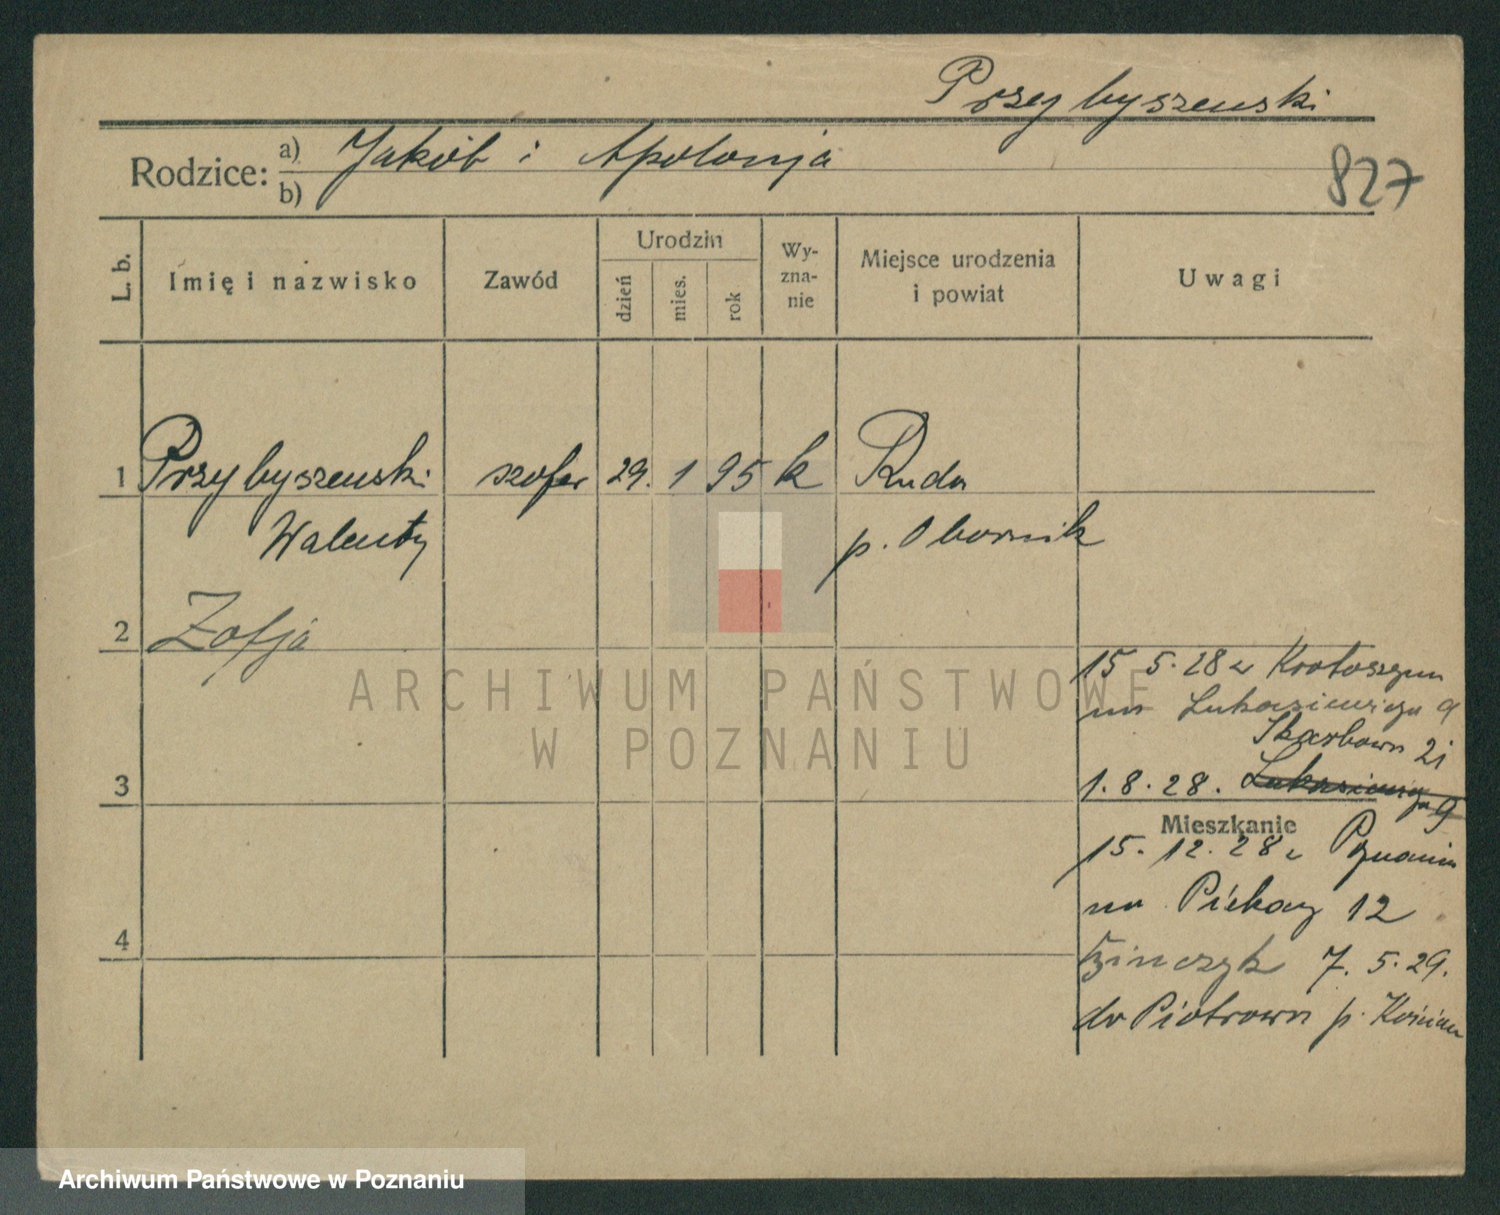 Przybyszewski
Rodzice: a) Jakób i Apolonja
b)
827
L. b.
Imię i nazwisko
Zawód
Urodzin
dzień
mies.
rok
Wy-
zna-
nie
Miejsce urodzenia
i powiat
Uwagi
1 Przybyszewski szofer 29. 1 95 k Ruda
Walenty p. Obornik
2 Zofja
15 5.28 z Krotoszyna
na Łukasiewicza 9
Skarbowa 21
3
1.8.28. Łukasiewicza 9
Mieszkanie
15.12.28 z Poznania
na Piekary 12
4
7.5.29.
do Piotrowa p. Kościan
ARCHIWUM PAŃSTWOWE
W POZNANIU
Archiwum Państwowe w Poznaniu